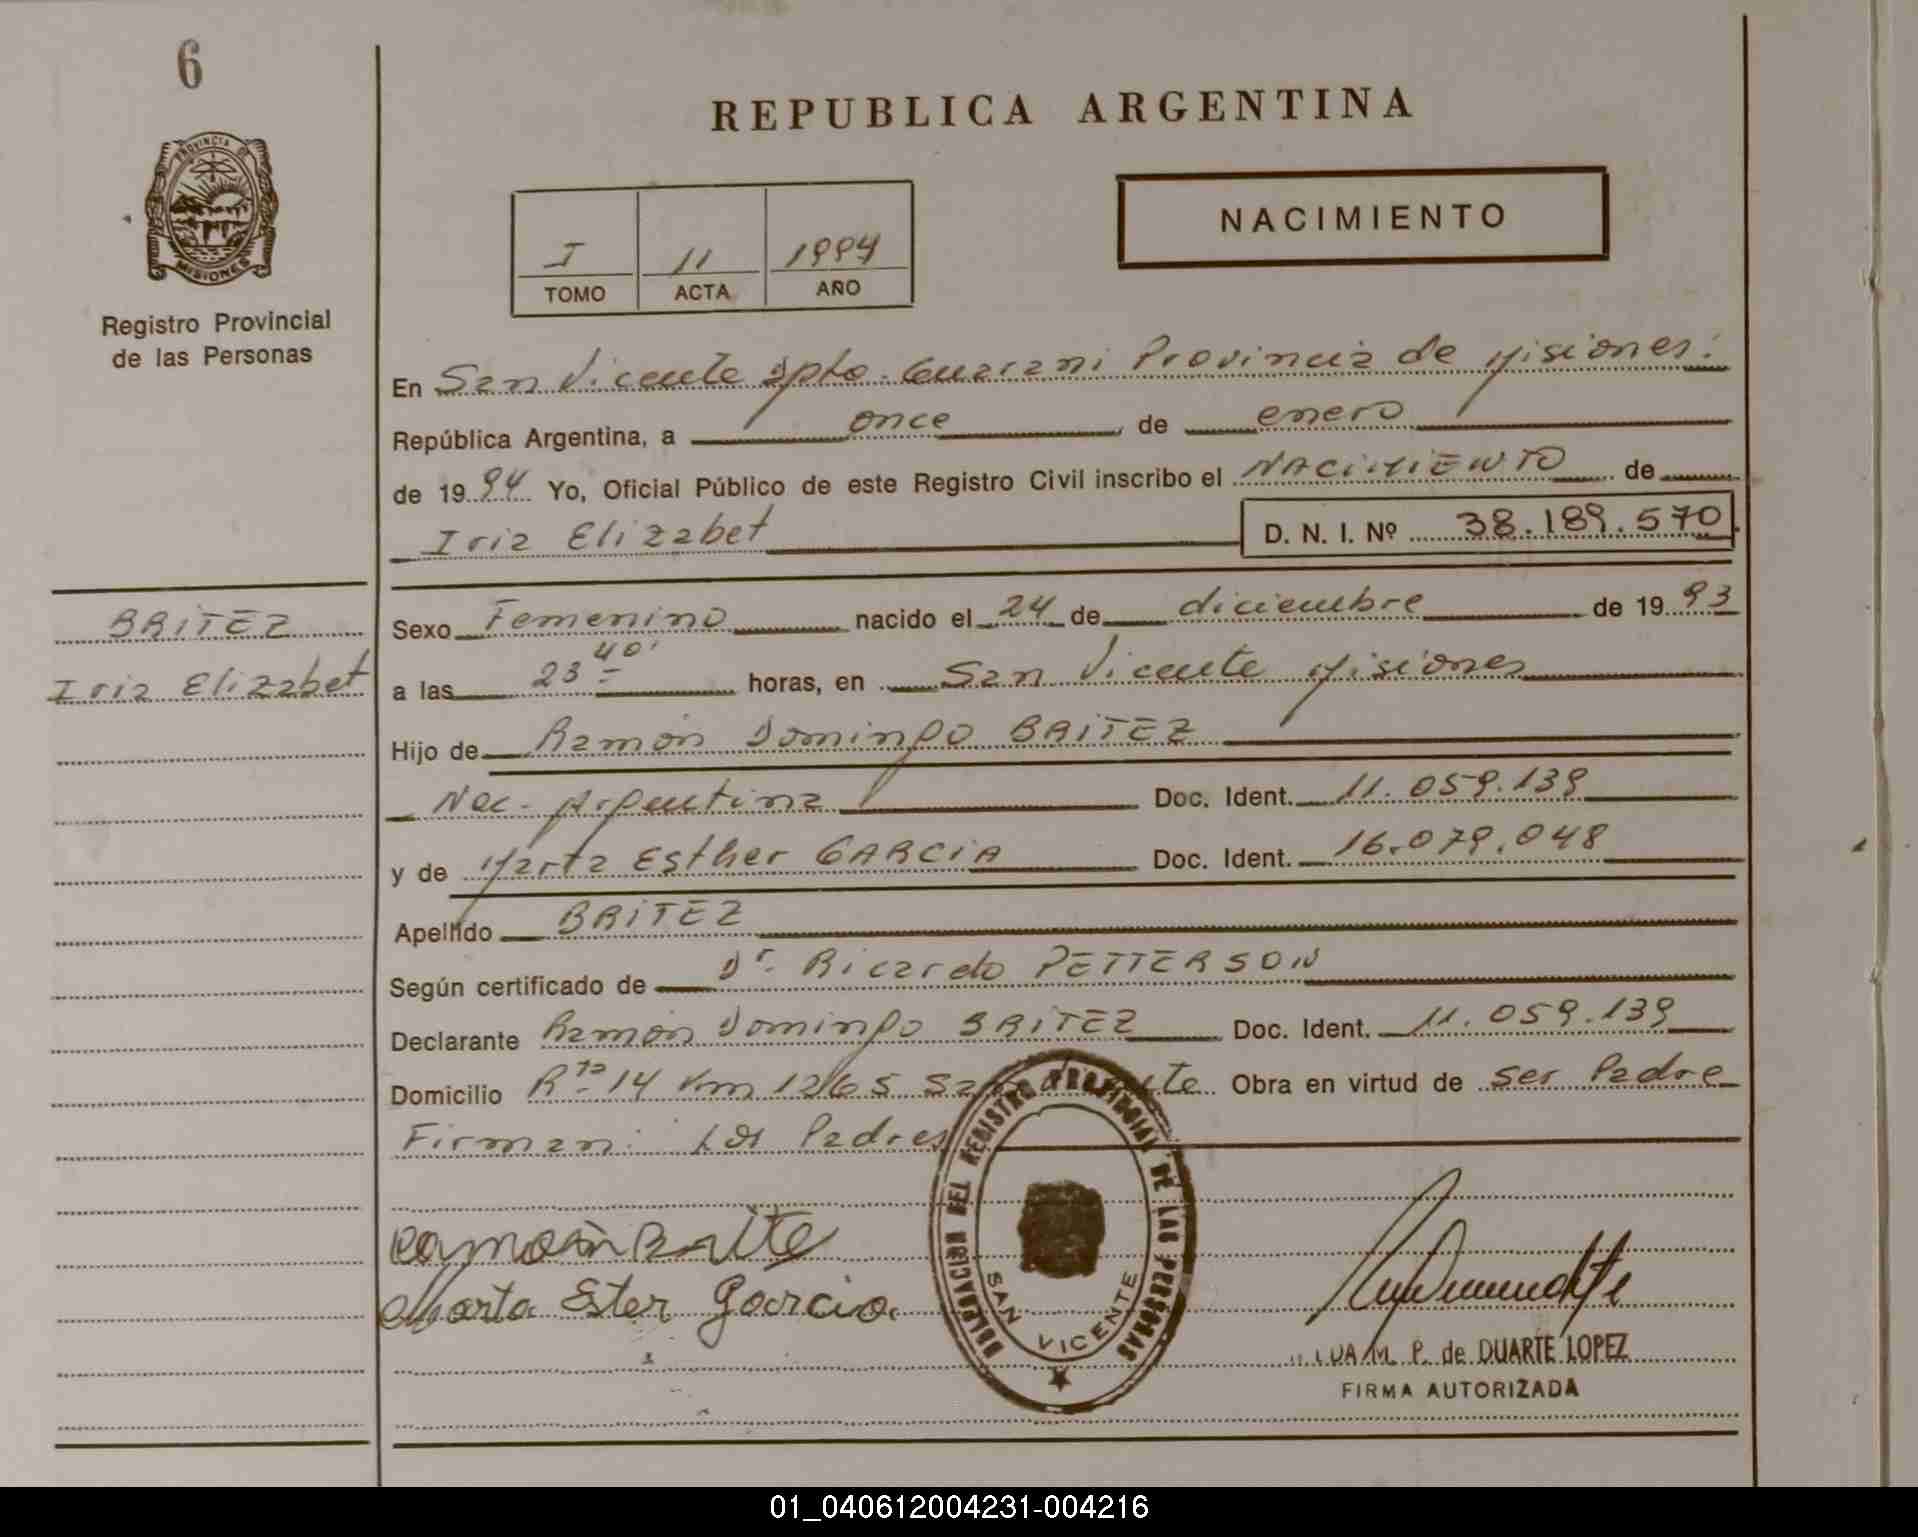 6
PROVINCIA DE
MISIONES
Registro Provincial
de las Personas
REPUBLICA ARGENTINA
I 11 1994
TOMO ACTA AÑO
NACIMIENTO
En San Vicente Dpto. Guarani Provincia de Misiones.
República Argentina, a once de enero
de 1994 Yo, Oficial Público de este Registro Civil inscribo el NACIMIENTO de
Iria Elizabet D. N. I. Nº 38.189.570
BRITEZ
Iria Elizabet
Sexo Femenino nacido el 24 de diciembre de 1993
a las 23 40' horas, en San Vicente Misiones
Hijo de Ramón Domingo BRITEZ
Nac. Argentina Doc. Ident. 11.059.139
y de Marta Esther GARCIA Doc. Ident. 16.079.048
Apellido BRITEZ
Según certificado de Dr. Ricardo PETTERSON
Declarante Ramón Domingo BRITEZ Doc. Ident. 11.059.139
Domicilio Rta 14 Km 1265 San Vicente Obra en virtud de ser Padre
Firman: Los Padres
DELEGACION DEL REGISTRO PROVINCIAL DE LAS PERSONAS
SAN VICENTE
Ramón Brite
Marta Ester Garcia
M. P. de DUARTE LOPEZ
FIRMA AUTORIZADA
01_040612004231-004216